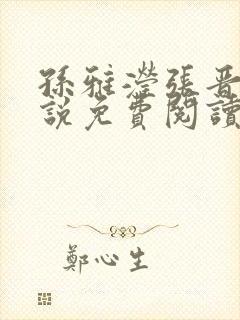 孫雅瀅張晋
說免費閱讀
鄭心生